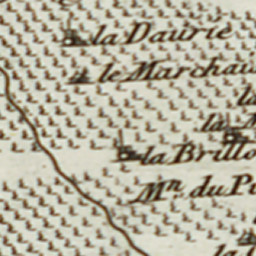 la Daurie
le Marchau
la
la M
la Brillo
Mn. du Po
la